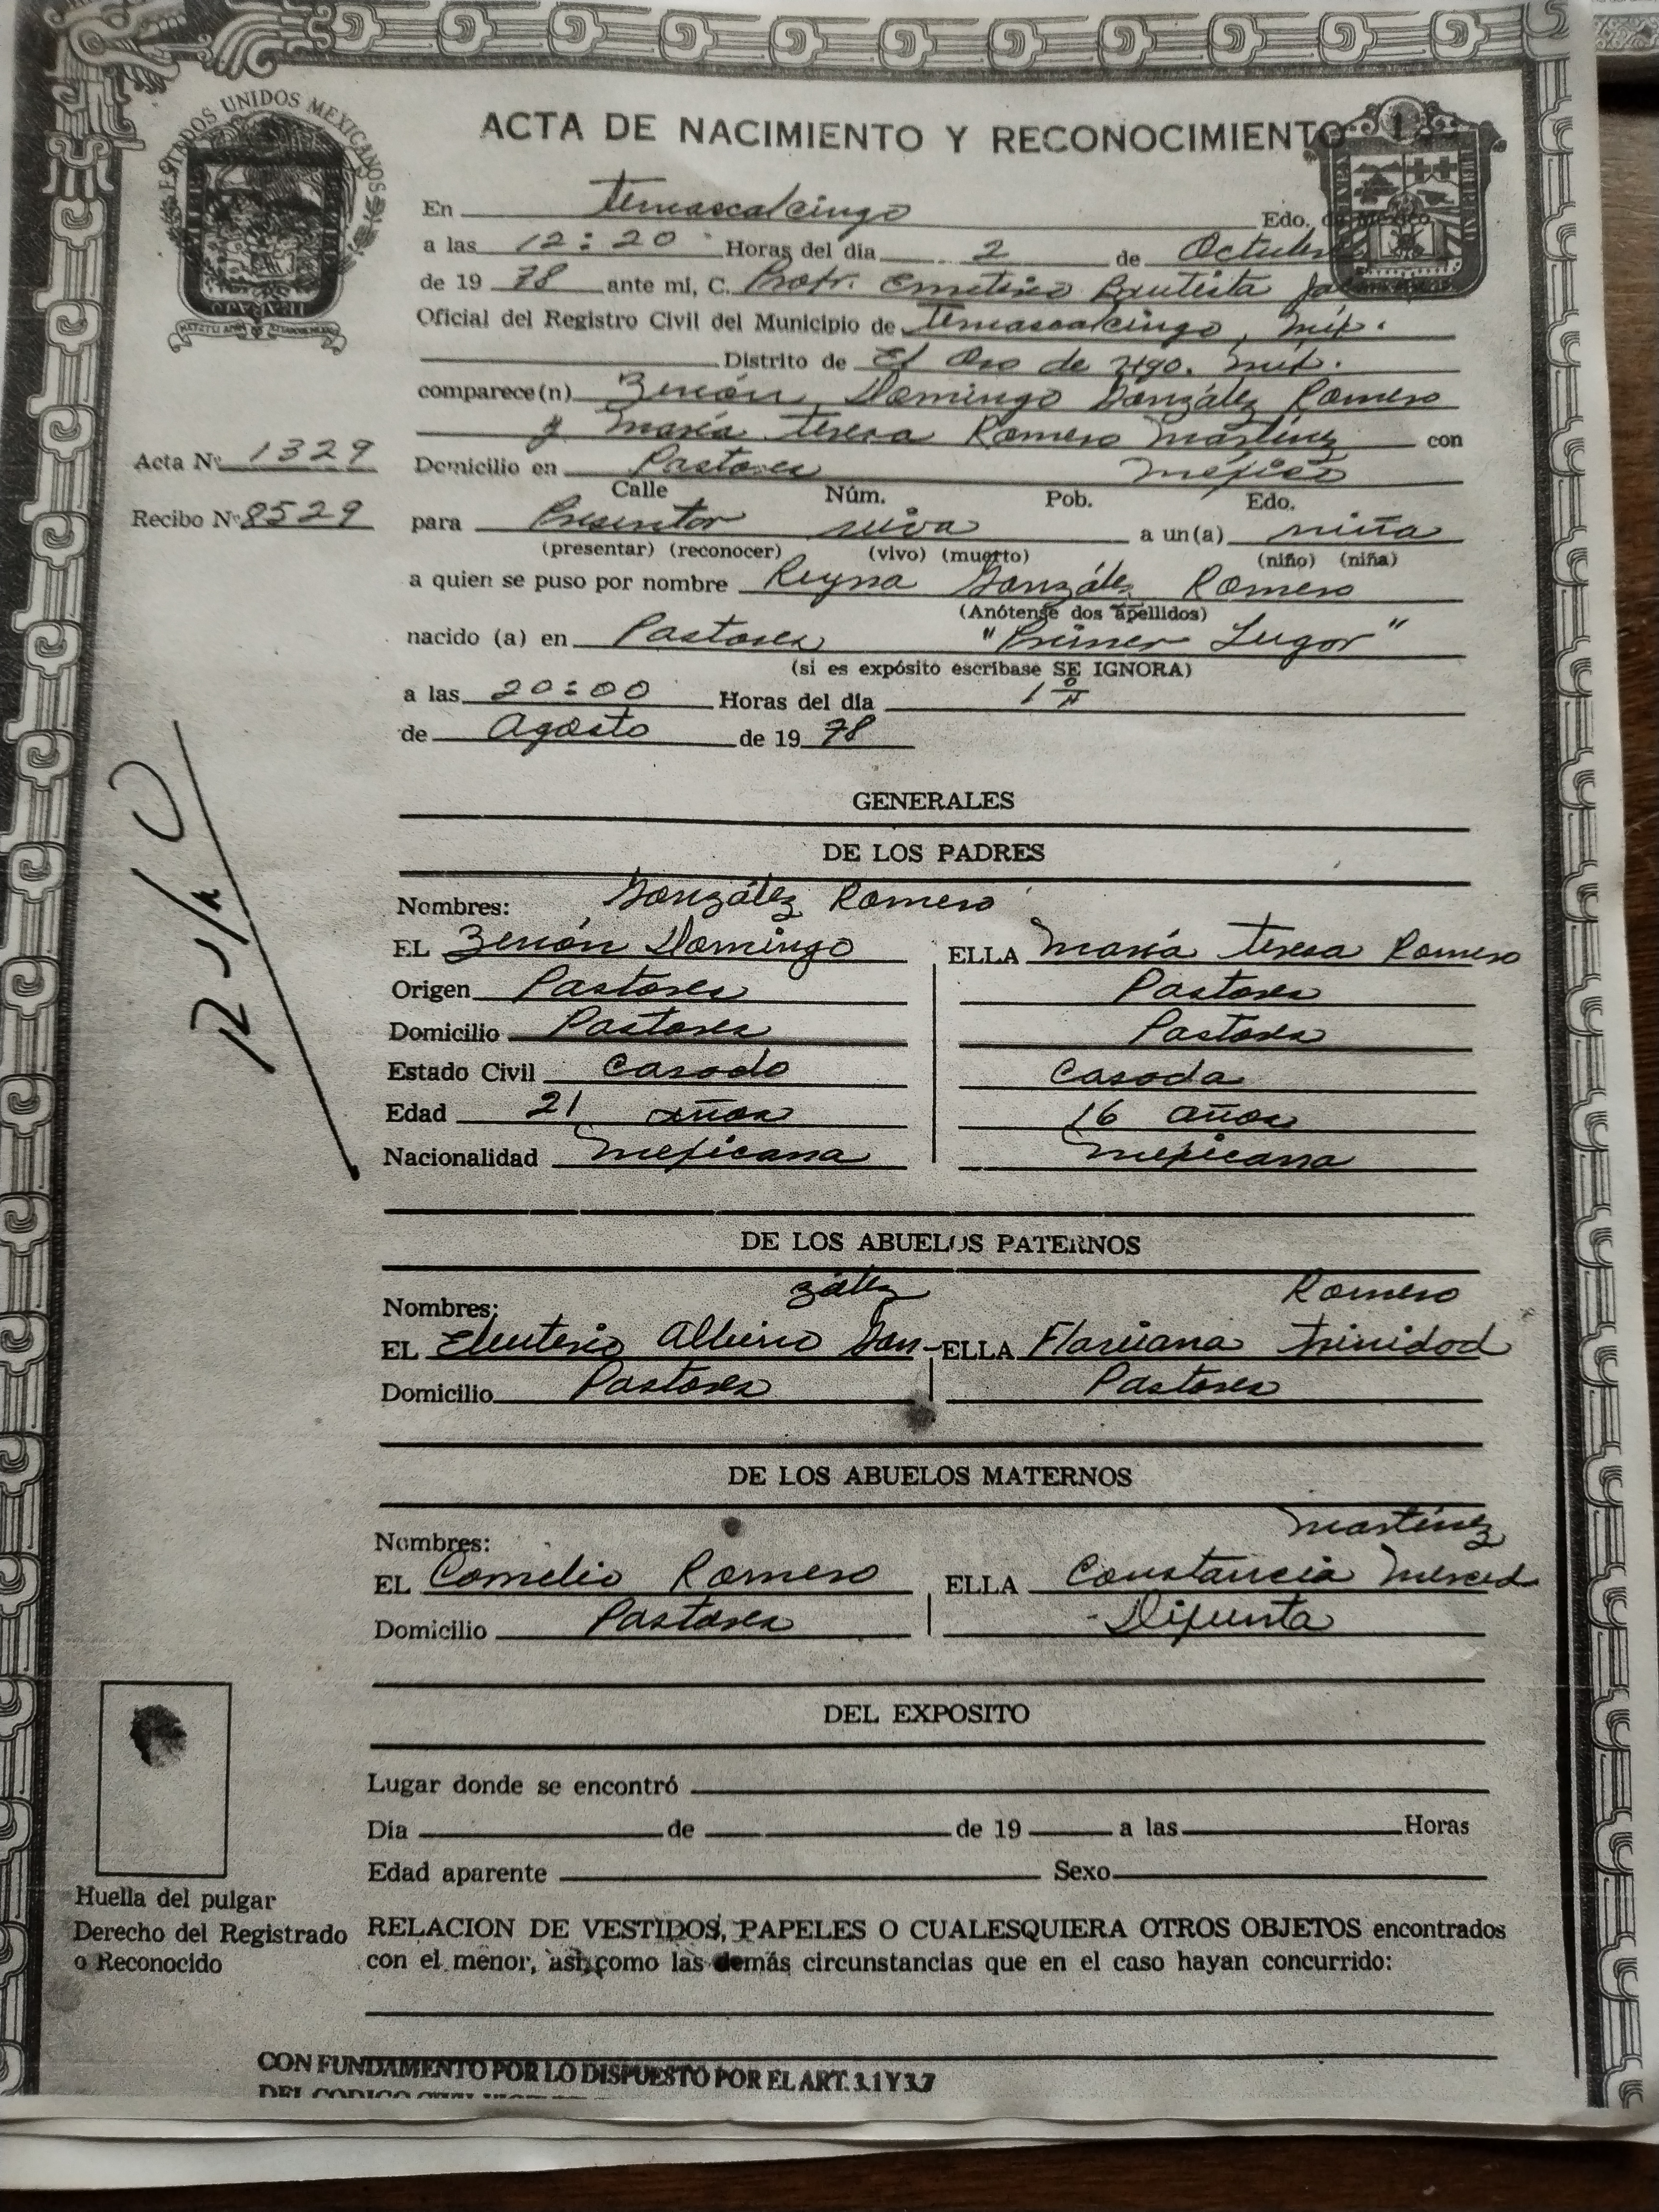 ESTADOS UNIDOS MEXICANOS
ACTA DE NACIMIENTO Y RECONOCIMIENTO
En Temascalcingo Edo. de México
a las 12:20 Horas del día 2 de Octubre
de 19 78 ante mi, C. Profr. Emeterio Bautista
Oficial del Registro Civil del Municipio de Temascalcingo, Méx.
Distrito de El Oro de Hgo. Méx.
comparece(n) Zenón Domingo González Romero
y María Teresa Romero Martínez con
Acta Nº 1329
Domicilio en Pastores México
Calle Núm. Pob. Edo.
Recibo Nº 8529
para Presentar viva a un(a) niña
(presentar) (reconocer) (vivo) (muerto) (niño) (niña)
a quien se puso por nombre Reyna González Romero
(Anótense dos apellidos)
nacido (a) en Pastores "Primer Lugar"
(si es expósito escríbase SE IGNORA)
a las 20:00 Horas del día 1º
de Agosto de 19 78
GENERALES
DE LOS PADRES
González Romero
Nombres:
EL Zenón Domingo ELLA María Teresa Romero
Origen Pastores Pastores
Domicilio Pastores Pastores
Estado Civil Casado Casada
Edad 21 años 16 años
Nacionalidad Mexicana Mexicana
DE LOS ABUELOS PATERNOS
zález Romero
Nombres:
EL Eleuterio Albino Gon- ELLA Flaviana Trinidad
Domicilio Pastores Pastores
DE LOS ABUELOS MATERNOS
Martínez
Nombres:
EL Cornelio Romero ELLA Constancia Merced
Domicilio Pastores - Difunta
DEL EXPOSITO
Lugar donde se encontró
Día de de 19 a las Horas
Edad aparente Sexo
Huella del pulgar
Derecho del Registrado
o Reconocido
RELACION DE VESTIDOS, PAPELES O CUALESQUIERA OTROS OBJETOS encontrados
con el menor, así como las demás circunstancias que en el caso hayan concurrido:
CON FUNDAMENTO POR LO DISPUESTO POR EL ART. 3.1 Y 3.7
DEL CODIGO CIVIL